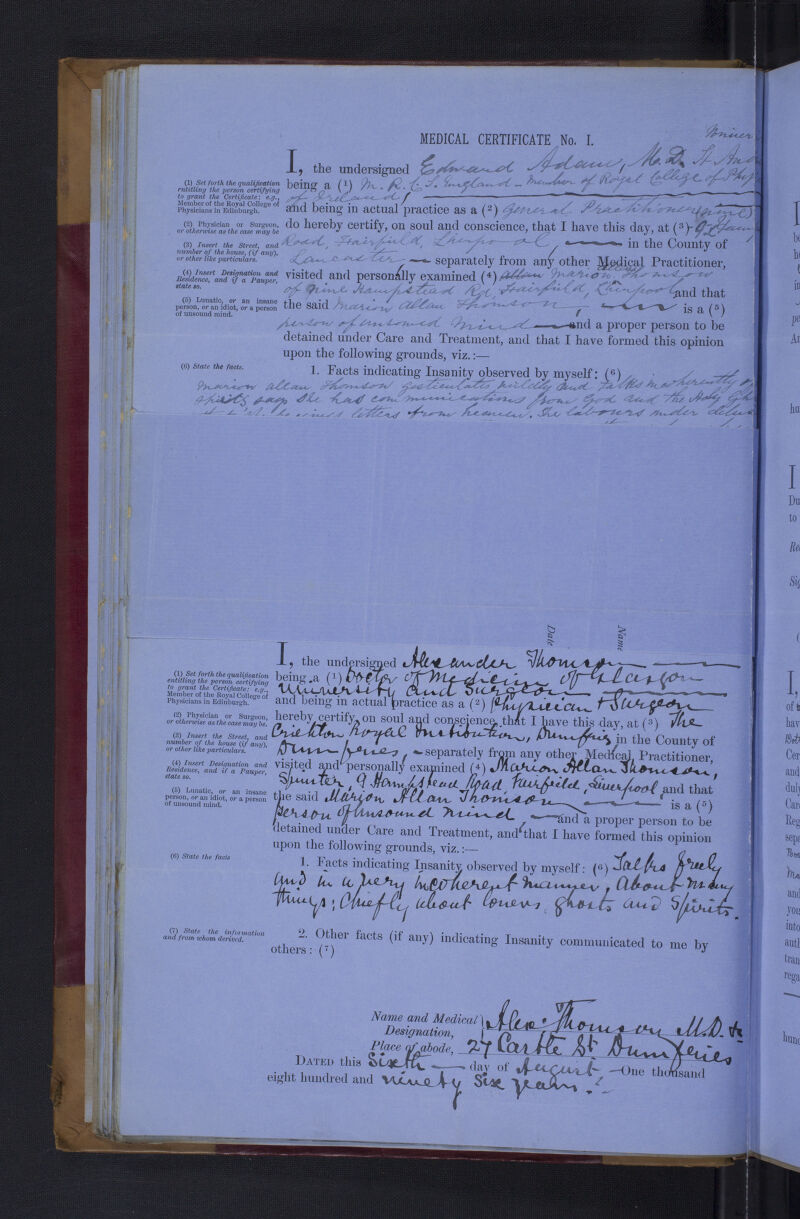 MEDICAL CERTIFICATE No. I.
I, the undersigned Edward Adam, M.D. St And
being a (1) M.R.C.S. England - Member of Royal College of Phys
of Ireland,
and being in actual practice as a (2) General Practitioner
do hereby certify, on soul and conscience, that I have this day, at (3)
Road, Fairfield, Liverpool, in the County of
Lancaster separately from any other Medical Practitioner,
visited and personally examined (4) Allan Marion Thomson
of Nine Hampstead Rd, Fairfield, Liverpool and that
the said Marion Allan Thomson, is a (5)
person of unsound mind and a proper person to be
detained under Care and Treatment, and that I have formed this opinion
upon the following grounds, viz.:—
1. Facts indicating Insanity observed by myself: (6)
Marion Allan Thomson gesticulates wildly and talks incoherently
spirits says she has communications from God and the Holy Gh
letters from heaven. She labours under delus
(1) Set forth the qualification
entitling the person certifying
to grant the Certificate; e.g.,
Member of the Royal College of
Physicians in Edinburgh.
(2) Physician or Surgeon,
or otherwise as the case may be
(3) Insert the Street, and
number of the house, (if any),
or other like particulars.
(4) Insert Designation and
Residence, and if a Pauper,
state so.
(5) Lunatic, or an insane
person, or an idiot, or a person
of unsound mind.
(6) State the facts.
Date
Name
I, the undersigned Alexander Thomson
being a (1) Doctor of Medicine of Glasgow
University and Surgeon
and being in actual practice as a (2) Physician & Surgeon
hereby certify, on soul and conscience, that I have this day, at (3) The
Crichton Royal Institution, Dumfries in the County of
Dumfries, separately from any other Medical Practitioner,
visited and personally examined (4) Marion Allan Thomson,
Spinster, 9 Hampstead Road Fairfield, Liverpool and that
the said Marion Allan Thomson is a (5)
Person of Unsound Mind, and a proper person to be
detained under Care and Treatment, and that I have formed this opinion
upon the following grounds, viz.:—
1. Facts indicating Insanity observed by myself: (6) Talks freely
and in a very incoherent manner, about many
things; Chiefly about lovers ghosts and Spirits.
2. Other facts (if any) indicating Insanity communicated to me by
others: (7)
Name and Medical Designation, Alex. Thomson M.D. &
Place of abode, 27 Castle St Dumfries
DATED this Sixth day of August One thousand
eight hundred and ninety Six years.
(1) Set forth the qualification
entitling the person certifying
to grant the Certificate; e.g.,
Member of the Royal College of
Physicians in Edinburgh.
(2) Physician or Surgeon,
or otherwise as the case may be,
(3) Insert the Street, and
number of the house (if any),
or other like particulars.
(4) Insert Designation and
Residence, and if a Pauper,
state so.
(5) Lunatic, or an insane
person, or an idiot, or a person
of unsound mind.
(6) State the facts
(7) State the information
and from whom derived.